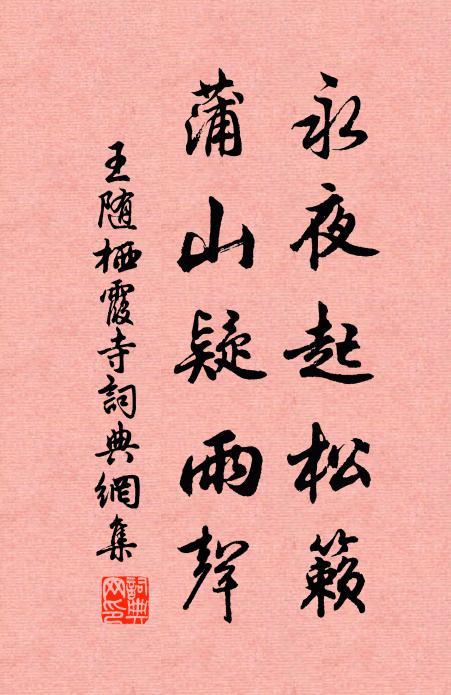 永夜起松籟
蒲山疑雨聲
王随栖霞寺詞典網集
詞典網印